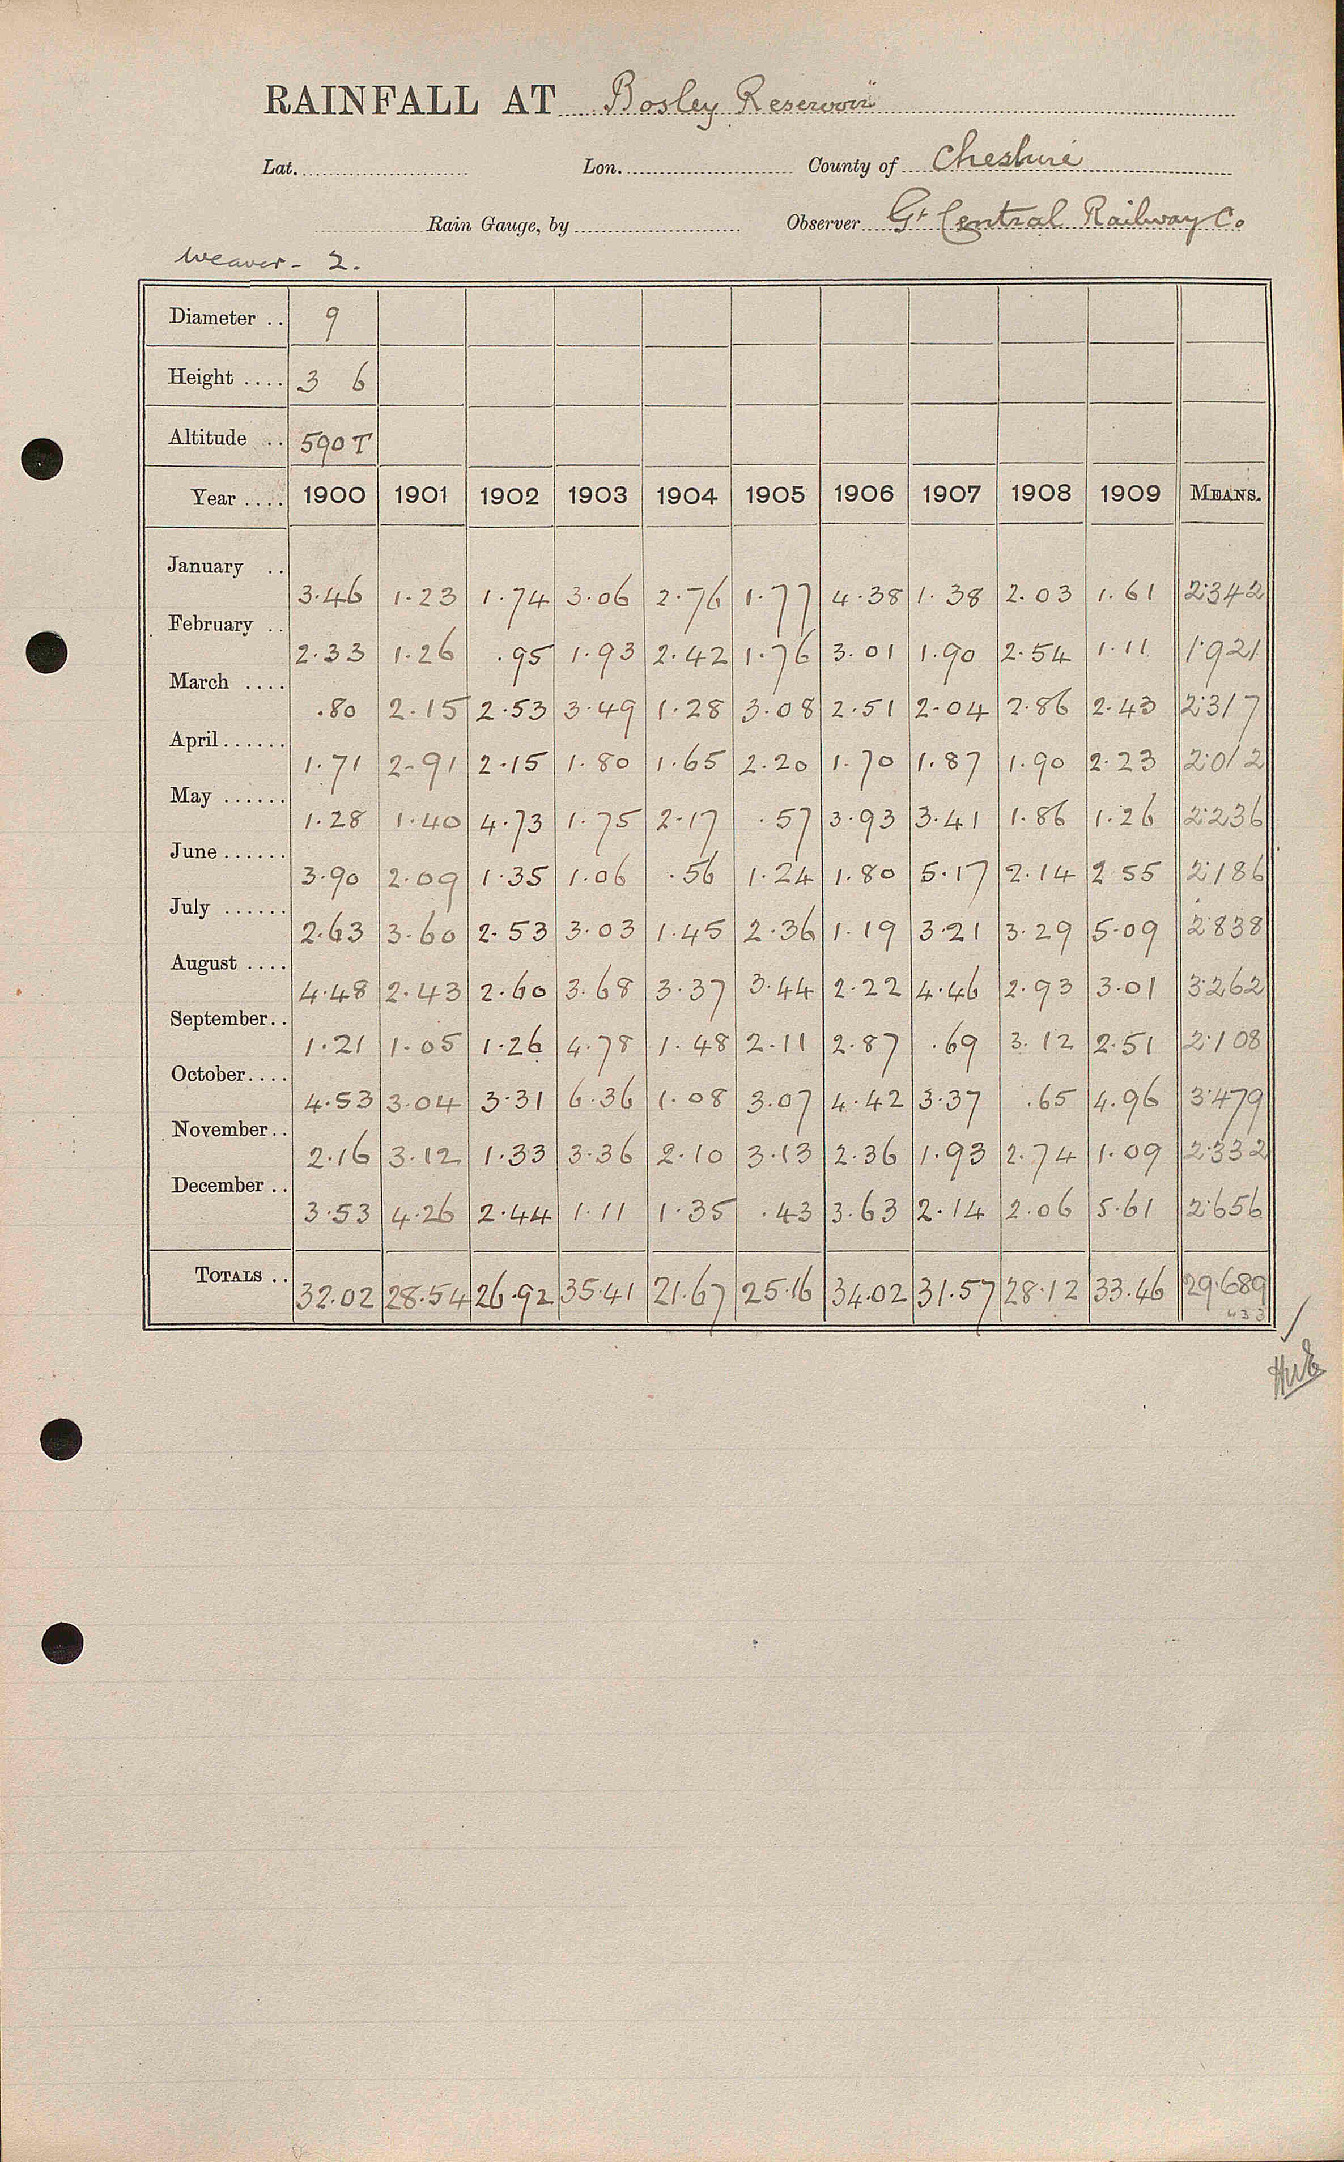 RAINFALL AT Bosley Reservoir
Lat. Lon. County of Cheshire
Rain Gauge, by Observer Gt Central Railway Co
Weaver - 2.
Diameter .. 9
Height .... 3 6
Altitude .. 590 T
Year .... 1900 1901 1902 1903 1904 1905 1906 1907 1908 1909 MEANS.
January .. 3.46 1.23 1.74 3.06 2.76 1.77 4.38 1.38 2.03 1.61 2.342
February .. 2.33 1.26 .95 1.93 2.42 1.76 3.01 1.90 2.54 1.11 1.921
March .... .80 2.15 2.53 3.49 1.28 3.08 2.51 2.04 2.86 2.43 2.317
April ...... 1.71 2.91 2.15 1.80 1.65 2.20 1.70 1.87 1.90 2.23 2.012
May ...... 1.28 1.40 4.73 1.75 2.17 .57 3.93 3.41 1.86 1.26 2.236
June ...... 3.90 2.09 1.35 1.06 .56 1.24 1.80 5.17 2.14 2 55 2.186
July ...... 2.63 3.60 2.53 3.03 1.45 2.36 1.19 3.21 3.29 5.09 2.838
August .... 4.48 2.43 2.60 3.68 3.37 3.44 2.22 4.46 2.93 3.01 3.262
September .. 1.21 1.05 1.26 4.78 1.48 2.11 2.87 .69 3.12 2.51 2.108
October .... 4.53 3.04 3.31 6.36 1.08 3.07 4.42 3.37 .65 4.96 3.479
November .. 2.16 3.12 1.33 3.36 2.10 3.13 2.36 1.93 2.74 1.09 2.332
December .. 3.53 4.26 2.44 1.11 1.35 .43 3.63 2.14 2.06 5.61 2.656
TOTALS .. 32.02 28.54 26.92 35.41 21.67 25.16 34.02 31.57 28.12 33.46 29.689